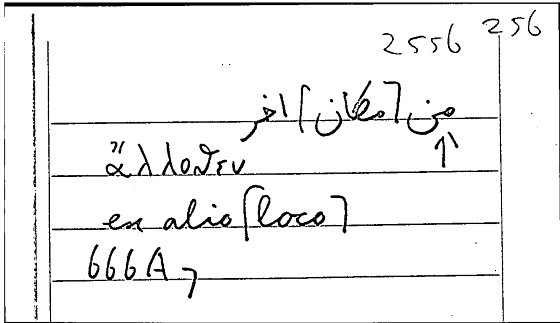 2556 256
من [مكان] اخر
↑
ἄλλοθεν
ex alio [loco]
666A7